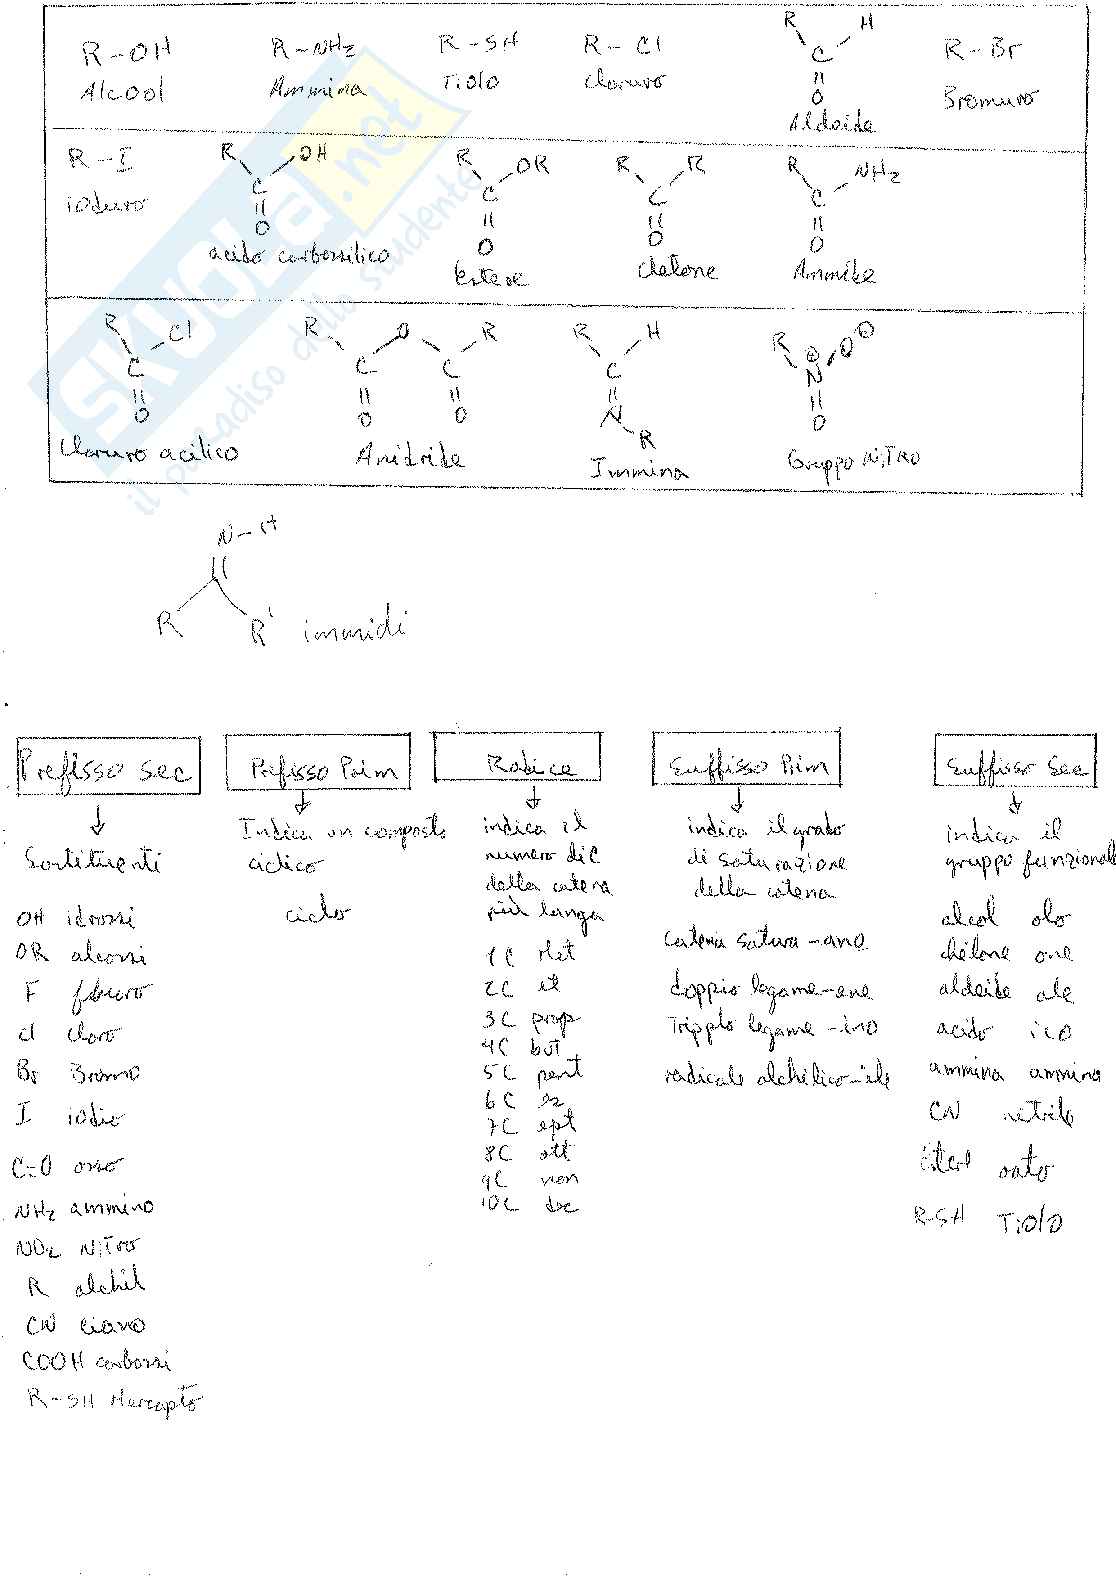 R-OH R-NH2 R-SH R-Cl R H C O R-Br
Alcool Ammina Tiolo Cloruro Aldeide Bromuro
R-I R OH C O R OR C O R R C O R NH2 C O
ioduro acido carbossilico Estere chetone Ammide
R Cl C O R O R C C O O R H C N R R N⊕ O O⊖
Cloruro acilico Anidride Immina Gruppo Nitro
SKUOLA.net
il paradiso dello studente
N-H
R R' immidi
Prefisso sec
Sostituenti
OH idrossi
OR alcossi
F fluoro
Cl cloro
Br Bromo
I iodio
C=O osso
NH2 ammino
NO2 Nitro
R alchil
CN ciano
COOH carbossi
R-SH Mercapto
Prefisso Prim
Indica un composto
ciclico
ciclo
Radice
indica il
numero di C
della catena
più lunga
1C Met
2C et
3C prop
4C but
5C pent
6C es
7C ept
8C ott
9C non
10C dec
Suffisso Prim
indica il grado
di saturazione
della catena
catena satura -ano
doppio legame -ene
Triplo legame -ino
radicale alchilico -ile
Suffisso Sec
indica il
gruppo funzionale
alcol olo
chetone one
aldeide ale
acido ico
ammina ammina
CN nitrile
Ester oato
R-SH Tiolo